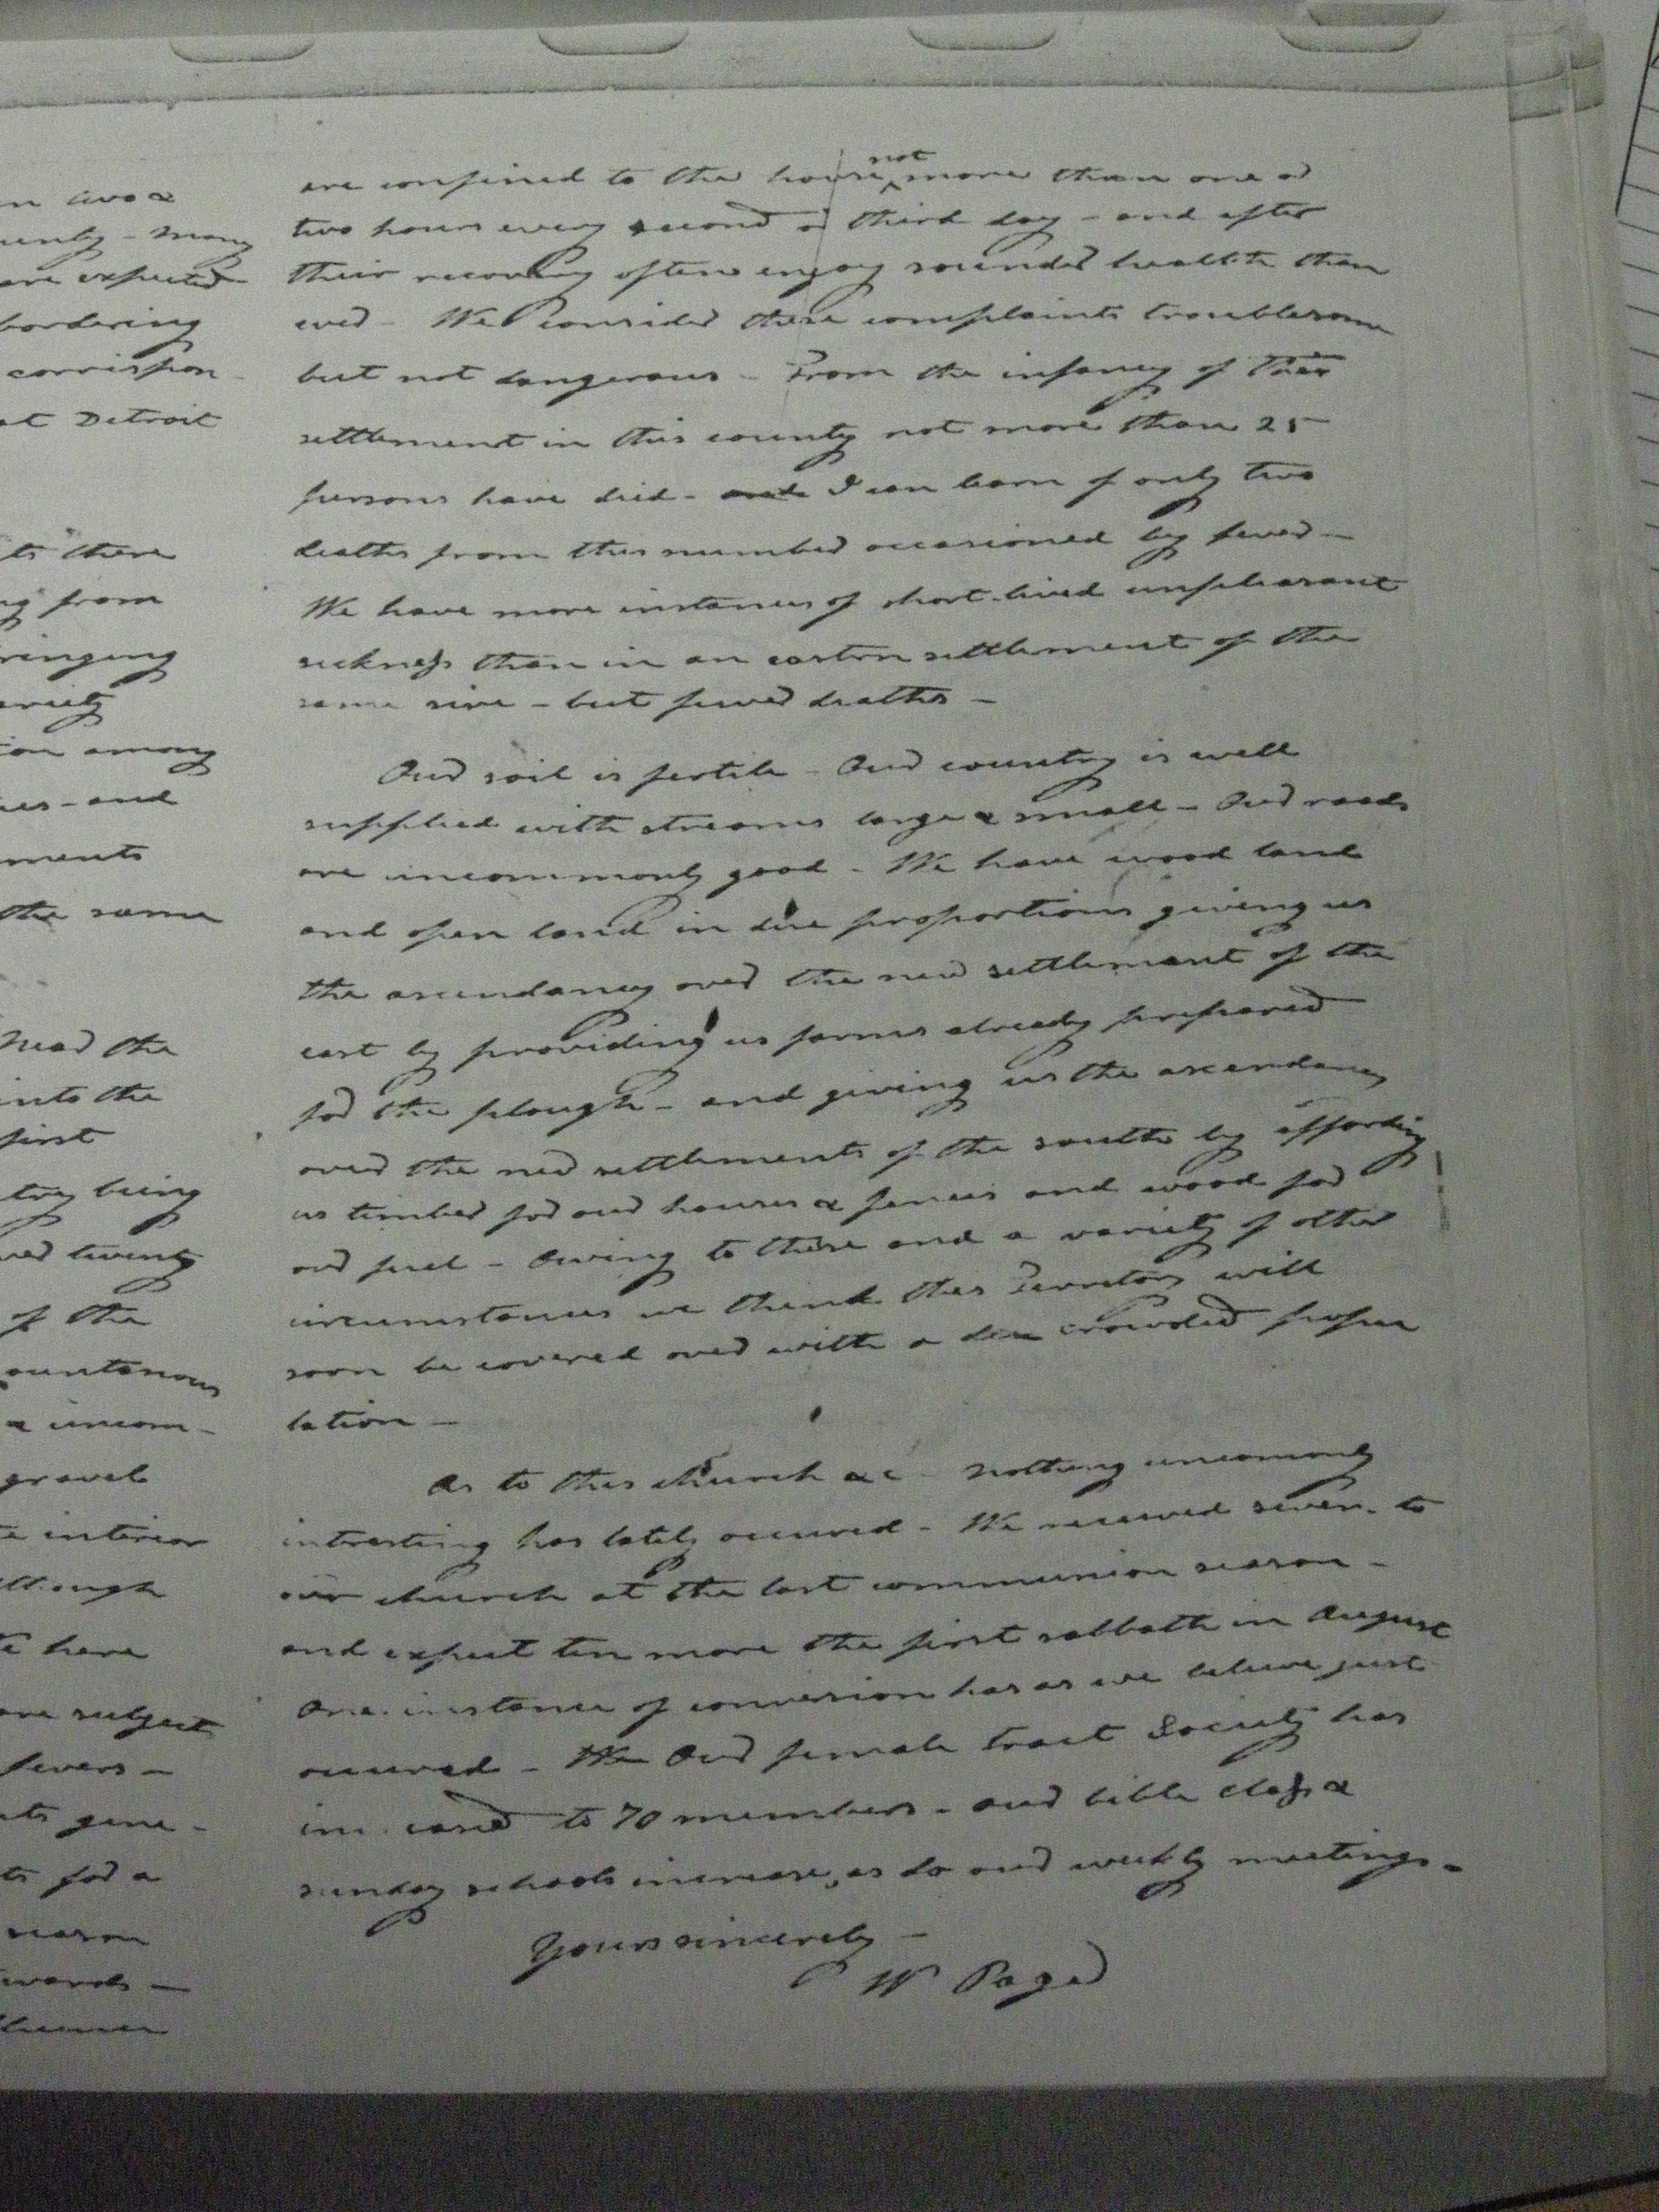 n two &
unty - many
are expected
bordering
corrispon
at Detroit
ts there
ng from
ringing
ariety
ion among
ies - and
ments
the same
near the
into the
first
try being
twenty
of the
ountenous
& uncom-
gravel
e interior
lthough
e here
are subject
fevers -
ts gene-
ts for a
season
wards -
are confined to the house not more than one or
two hours every second or third day - and after
their recovery often enjoy sounder health than
ever - We consider these complaints troublesome
but not dangerous - From the infancy of
settlement in this county not more than 25
persons have died - I can learn of only two
deaths from this number occasioned by fever -
We have more instances of short-lived unpleasant
sickness than in an eastern settlement of the
same size - but fewer deaths -
Our soil is fertile - Our country is well
supplied with streams large & small - Our roads
are uncommonly good - We have wood land
and open land in due proportions giving us
the ascendancy over the new settlement of the
east by providing us farms already prepared
for the plough - and giving us the ascendancy
over the new settlements of the south by affording
us timber for our houses & fences and wood for
our fuel - Owing to these and a variety of other
circumstances we think this Territory will
soon be covered over with a crowded popu
lation -
As to this church &c - nothing uncomonly
intresting has lately occured - We received seven to
our church at the last communion season -
and expect ten more the first sabbath in August
One instance of conversion has as we believe just
occured - We Our female tract Society has
to 70 members - our bible class &
sunday schools increase, as do our weekly meetings -
Yours sincerely -
W Page